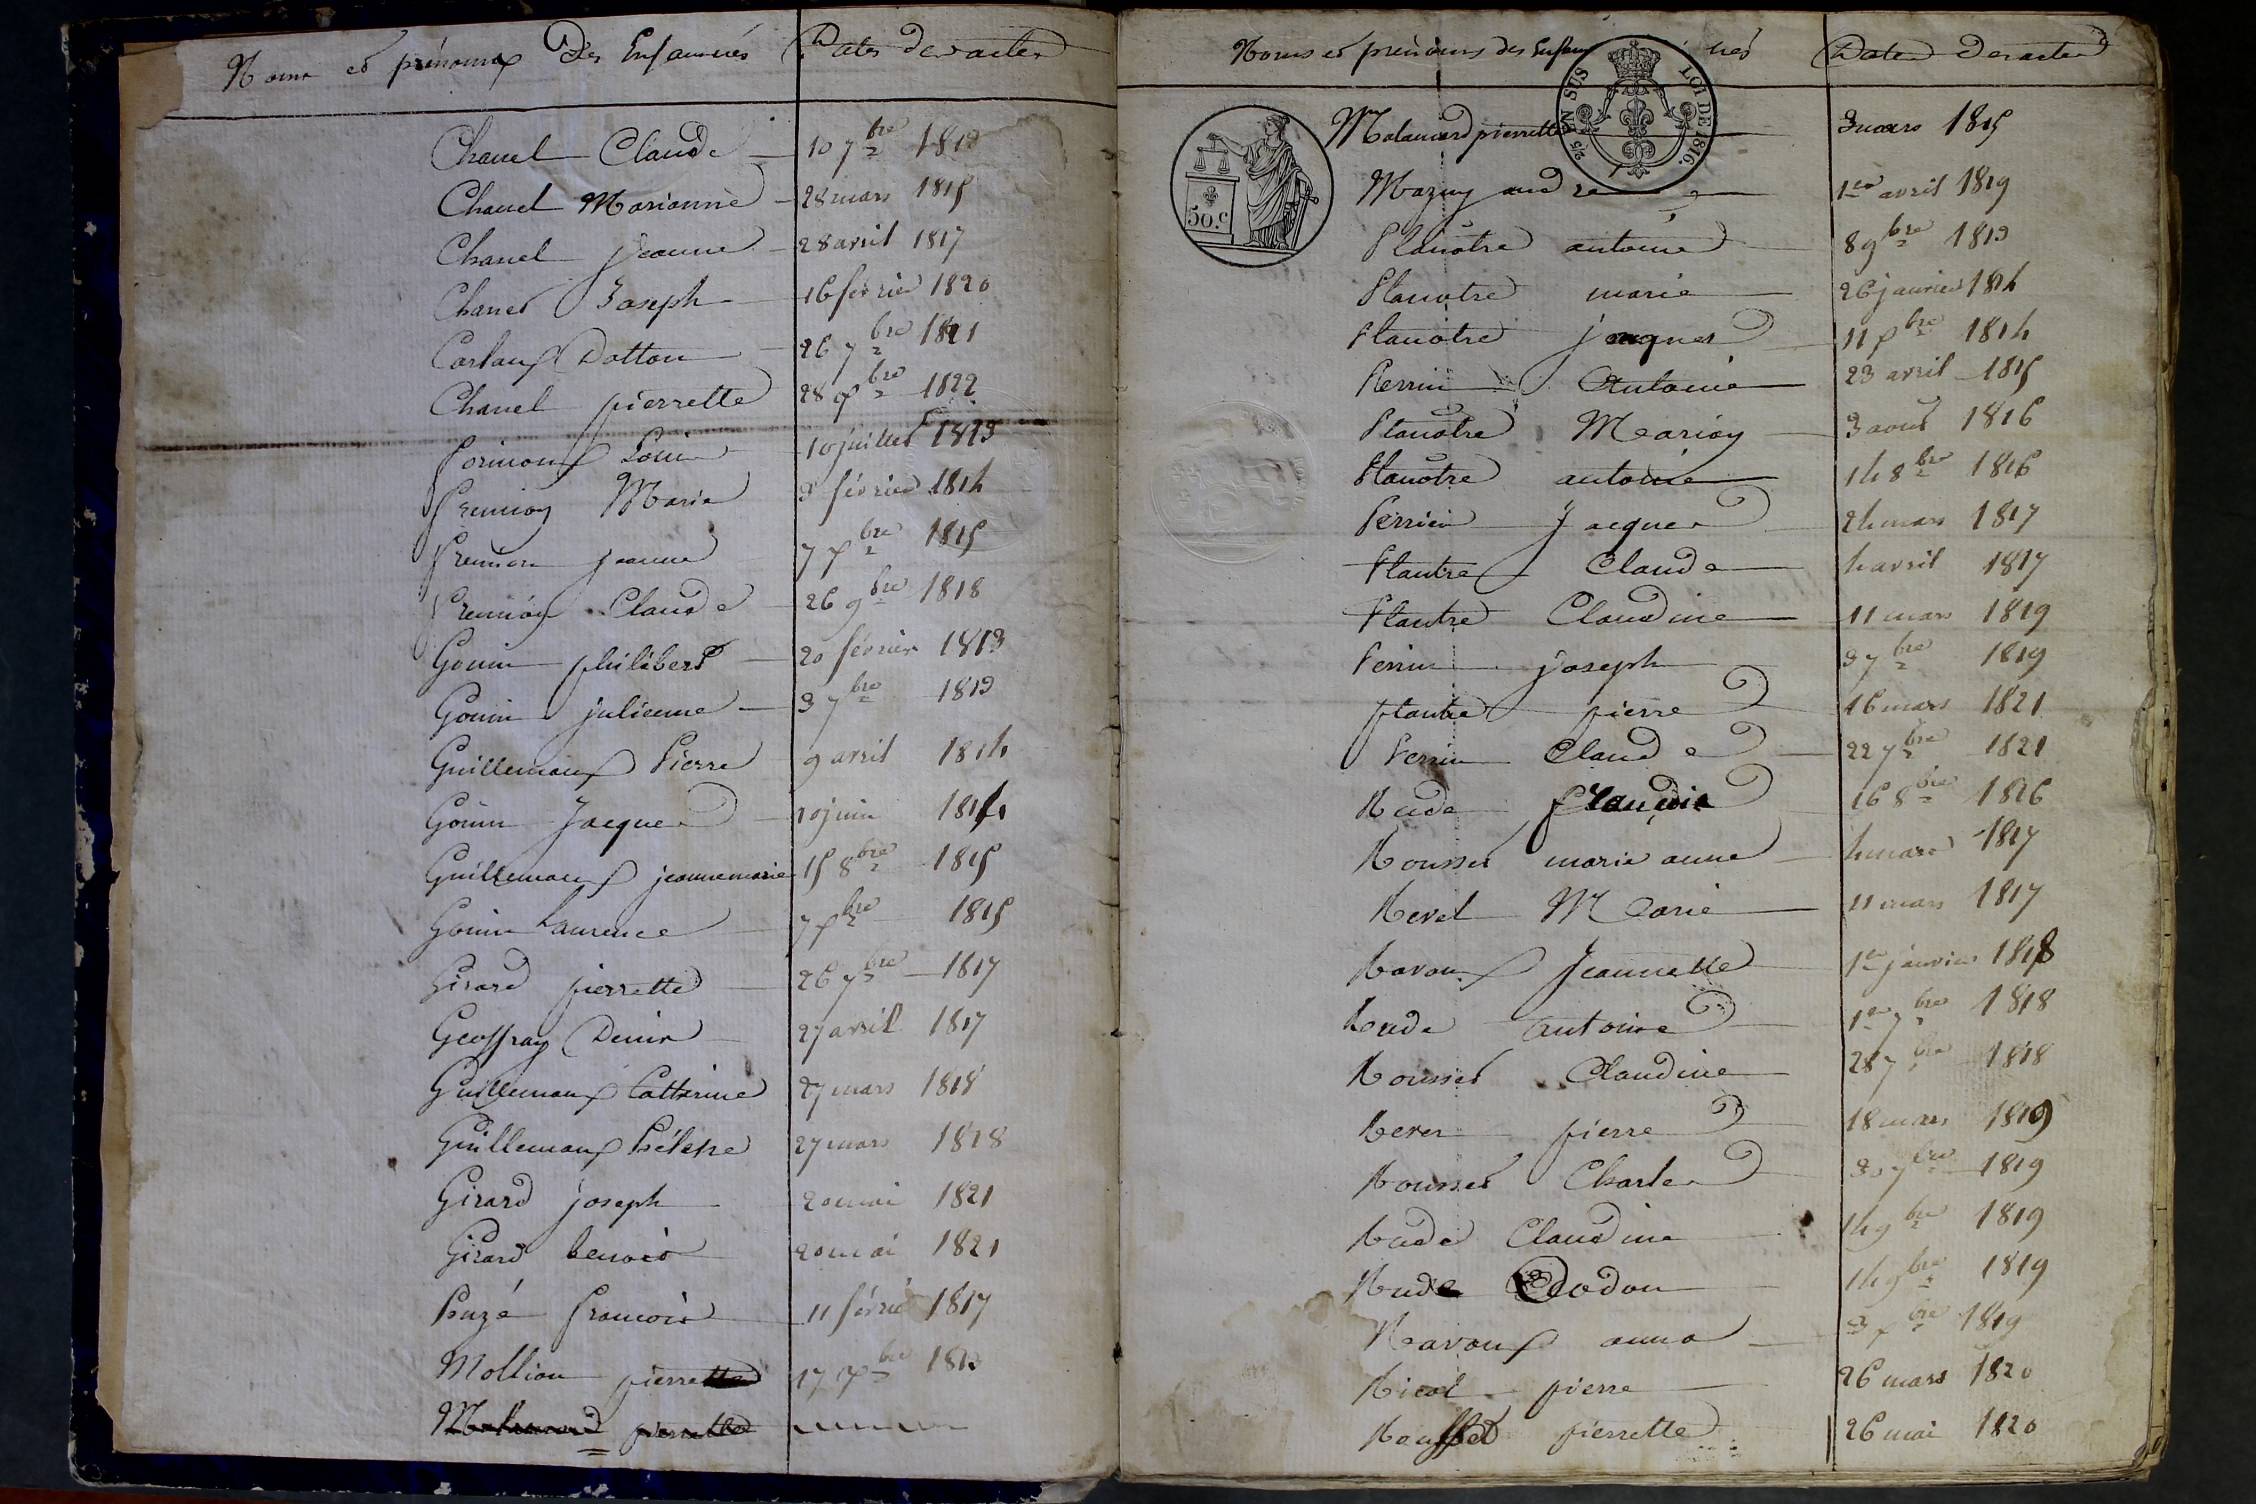 Noms et prénoms Des Enfans nés Dates des actes
Chanel Claude 10 7bre 1813
Chanel Marianne 28 mars 1815
Chanel jeanne 28 avril 1817
Chanel Joseph 16 février 1820
Dotton 26 7bre 1821
Chanel pierrette 28 Xbre 1822
Louis 10 juillet 1813
Marie 3 février 1814
jeanne 7 Xbre 1815
Claude 26 9bre 1818
Gonin philibert 20 février 1813
Gonin julienne 3 7bre 1813
Guillemaux Pierre 9 avril 1814
Gonin Jacques 10 juin 1814
Guillemaux jeanne marie 15 8bre 1815
Gonin Laurence 7 Xbre 1815
Girard pierrette 26 7bre 1817
Geoffray Denis 27 avril 1817
Guillemaux Catherine 27 mars 1818
Guillemaux 27 mars 1818
Girard joseph 20 mai 1821
Girard benoit 20 mai 1821
françois 11 février 1817
Mollion pierrette 17 Xbre 1813
pierrette
Noms et prénoms des Enfans nés Dates des actes
2/5 EN SUS LOI DE 1816.
50.c
Malamard pierrette 3 mars 1815
Mazuy andré 1er avril 1819
Planotre antoine 8 9bre 1813
Planotre marie 26 janvier 1814
Planotre jacques 11 Xbre 1814
Perrin Antoine 23 avril 1815
Planotre Marion 3 aout 1816
Planotre antoine 14 8bre 1816
Perrin Jacques 24 mars 1817
Plantre Claude 4 avril 1817
Plantre Claudine 11 mars 1819
Perrin joseph 3 7bre 1819
plantre pierre 16 mars 1821
Perrin Claude 22 7bre 1821
Rude françois 16 8bre 1816
Rousset marie anne 4 mars 1817
Revel Marie 11 mars 1817
Ravoux Jeannette 1er janvier 1818
Rude antoine 1er 7bre 1818
Rousset Claudine 28 7bre 1818
pierre 18 mars 1819
Rousset Charles 30 7bre 1819
Rude Claudine 14 9bre 1819
Rude Dodon 14 9bre 1819
Ravoux anna 3 Xbre 1819
Nicol pierre 26 mars 1820
Rousset pierrette 26 mai 1820